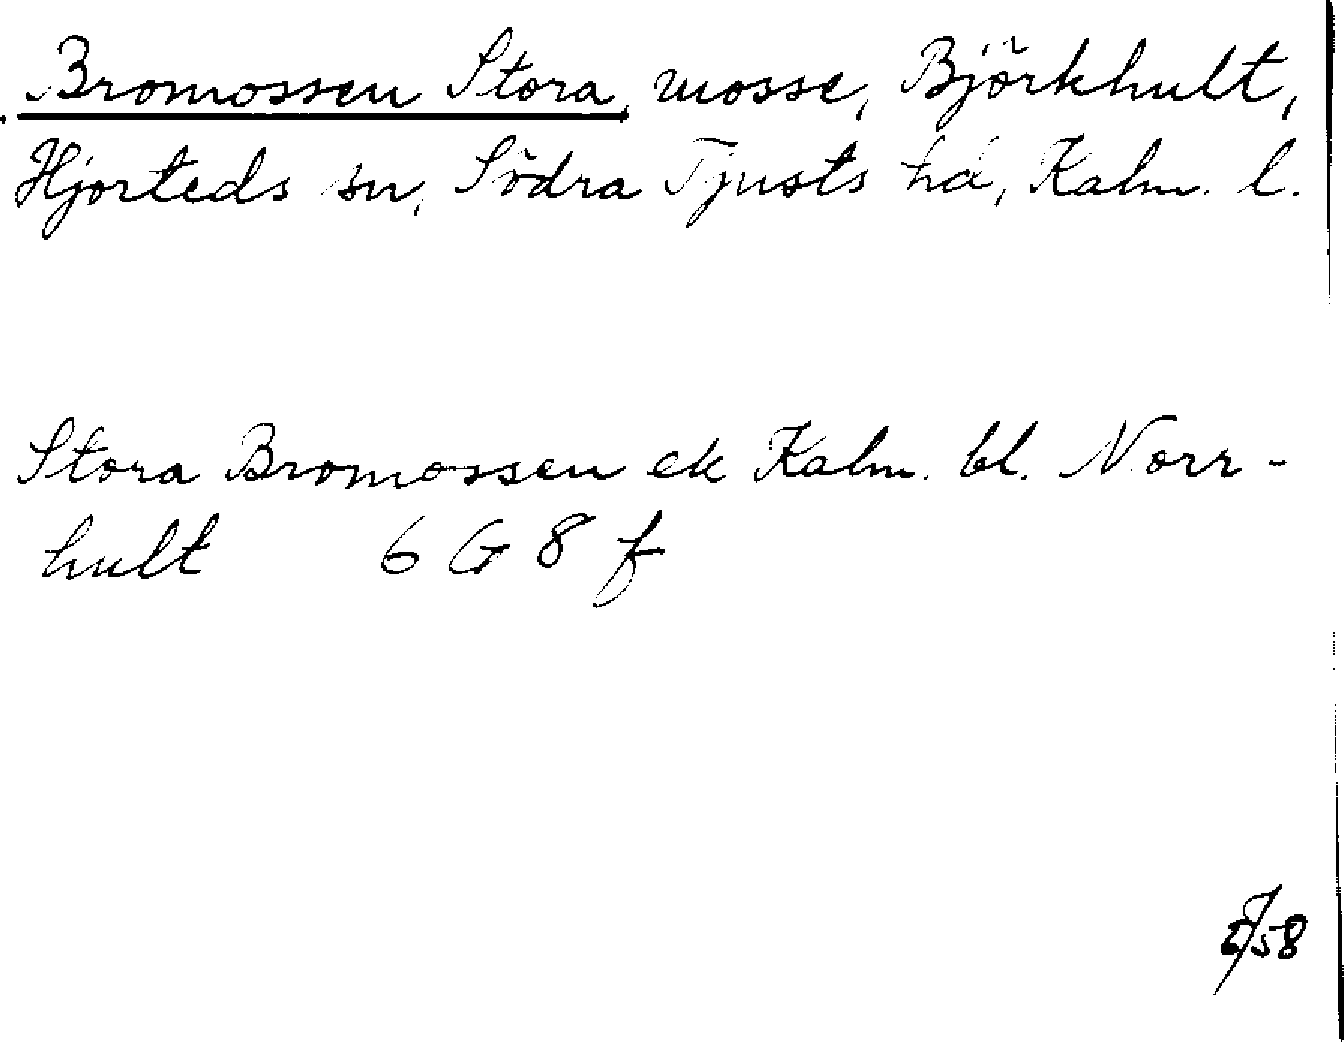 Bromossen Stora, mosse, Björkhult,
Hjorteds sn, Södra Tjusts hd, Kalm. l.
Stora Bromossen ek Kalm. bl. Norr-
hult 6 G 8 f